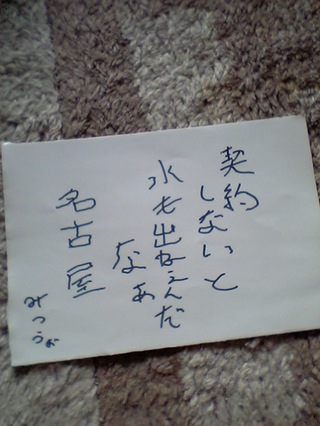 契約
しないと
水も出ねぇんだ
なあ
名古屋
みつを